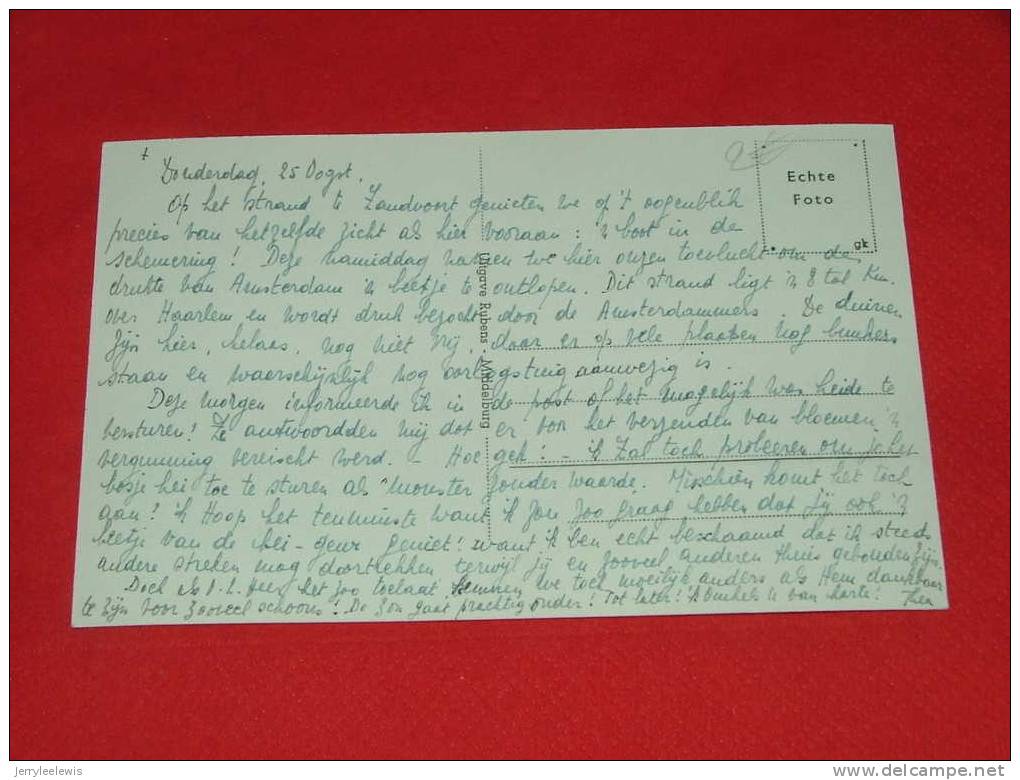 Donderdag, 25 Oogst.
Op het strand te Zandvoort genieten we op 't oogenblik
precies van hetzelfde zicht als hier vooraan: 'n boot in de
schemering! Deze namiddag namen we hier onzen toevlucht om de
drukte van Amsterdam 'n beetje te ontlopen. Dit strand ligt 'n 8 tal Km.
over Haarlem en wordt druk bezocht door de Amsterdammers. De duinen
zijn hier, helaas, nog niet vrij, daar er op vele plaatsen nog bunkers
staan en waarschijnlijk nog oorlogstuig aanwezig is.
Deze morgen informeerde ik in de post of het mogelijk was heide te
versturen! Ze antwoordden mij dat er voor het verzenden van bloemen 'n
vergunning vereischt werd. - Hoe gek! - ik zal toch probeeren om je het
bosje hei toe te sturen als "monster zonder waarde. Misschien komt het toch
aan! 'k Hoop het tenminste want ik zou zoo graag hebben dat jij ook 'n
beetje van de hei-geur geniet! want ik ben echt beschaamd dat ik steeds
andere streken mag doortrekken terwijl jij en zooveel anderen thuis gebonden zijn.
Doch als O.L. Heer het zoo toelaat kunnen we toch moeilijk anders als Hem dankbaar
te zijn voor zooveel schoons! De zon gaat prachtig onder! Tot later! 'k Omhels U van harte! Thea
Echte
Foto
gk
Uitgave Rubens - Middelburg
jerryleelewis
delcampe.net